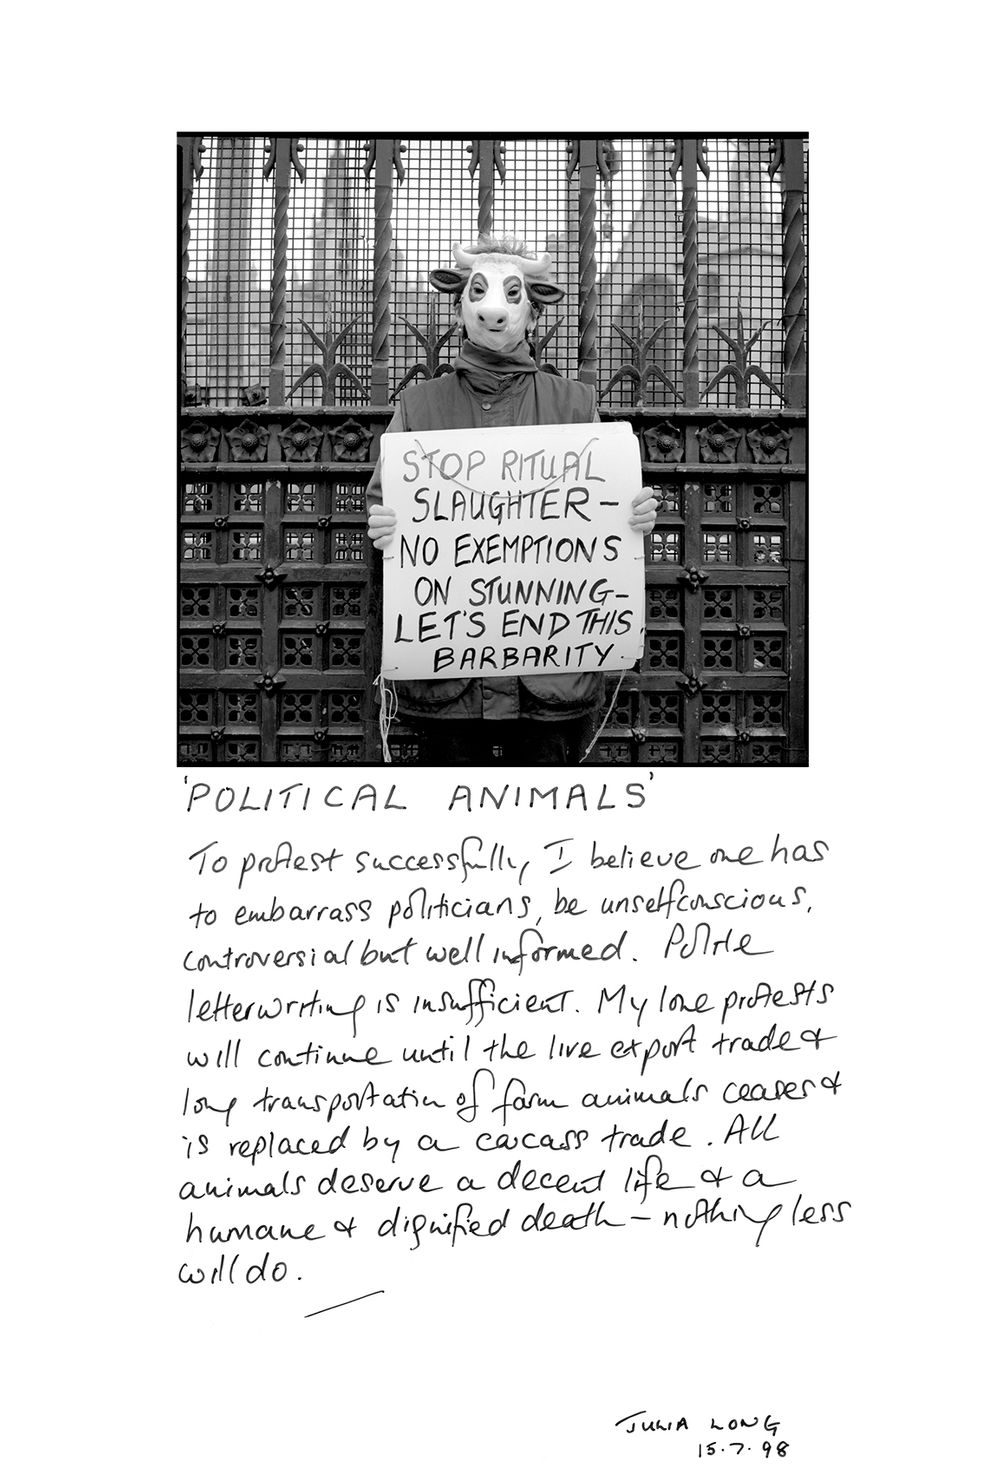 STOP RITUAL
SLAUGHTER –
NO EXEMPTIONS
ON STUNNING –
LET'S END THIS
BARBARITY.
'POLITICAL ANIMALS'
To protest successfully, I believe one has
to embarrass politicians, be unselfconscious,
controversial but well informed. Polite
letterwriting is insufficient. My lone protests
will continue until the live export trade &
long transportation of farm animals ceases &
is replaced by a carcass trade. All
animals deserve a decent life & a
humane & dignified death – nothing less
will do.
JULIA LONG
15.7.98